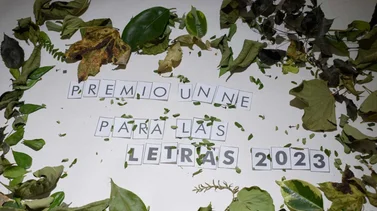 PREMIO UN NE
PARA LAS
LETRAS 2023